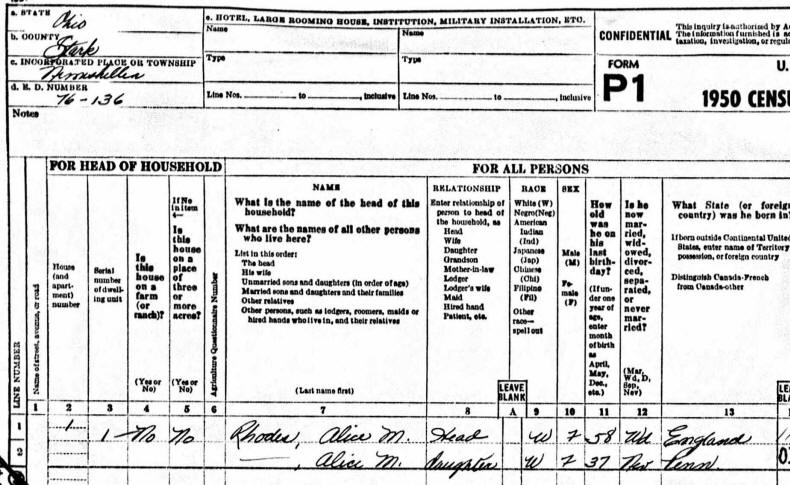 a. STATE
Ohio
b. COUNTY
Stark
c. INCORPORATED PLACE OR TOWNSHIP
Nimishillen
d. E. D. NUMBER
76-136
e. HOTEL, LARGE ROOMING HOUSE, INSTITUTION, MILITARY INSTALLATION, ETC.
Name
Name
Type
Type
Line Nos. to , inclusive
Line Nos. to , inclusive
CONFIDENTIAL
This inquiry is authorized by A
The information furnished is ac
taxation, investigation, or regula
FORM
P1
U.
1950 CENSU
Notes
FOR HEAD OF HOUSEHOLD
FOR ALL PERSONS
LINE NUMBER
Name of street, avenue, or road
House (and apart-ment) number
Serial number of dwell-ing unit
Is this house on a farm (or ranch)?
(Yes or No)
If No in item 4—
Is this house on a place of three or more acres?
(Yes or No)
Agriculture Questionnaire Number
NAME
What is the name of the head of this
household?
What are the names of all other persons
who live here?
List in this order:
The head
His wife
Unmarried sons and daughters (in order of age)
Married sons and daughters and their families
Other relatives
Other persons, such as lodgers, roomers, maids or
hired hands who live in, and their relatives
(Last name first)
RELATIONSHIP
Enter relationship of
person to head of
the household, as
Head
Wife
Daughter
Grandson
Mother-in-law
Lodger
Lodger's wife
Maid
Hired hand
Patient, etc.
LEAVE
BLANK
RACE
White (W)
Negro(Neg)
American
Indian
(Ind)
Japanese
(Jap)
Chinese
(Chi)
Filipino
(Fil)
Other
race—
spell out
SEX
Male
(M)
Fe-
male
(F)
How
old
was
he on
his
last
birth-
day?
(If un-
der one
year of
age,
enter
month
of birth
as
April,
May,
Dec.,
etc.)
Is he
now
mar-
ried,
wid-
owed,
divor-
ced,
sepa-
rated,
or
never
mar-
ried?
(Mar,
Wd, D,
Sep,
Nev)
What State (or foreig
country) was he born in?
If born outside Continental United
States, enter name of Territory
possession, or foreign country
Distinguish Canada-French
from Canada-other
LEA
BLA
1 2 3 4 5 6 7 8 A 9 10 11 12 13
1 1 1 No No Rhodes, Alice M. Head W F 58 Wd England
2 —, Alice M. Daughter W F 37 Nev Penn.